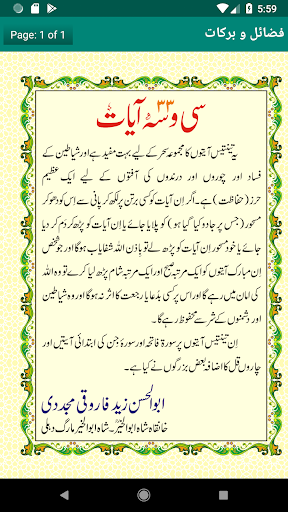 5:59
Page: 1 of 1
فضائل و برکات
سی و سہ ۳۳ آیات
یہ تینتیس آیتوں کا مجموعہ سحر کے لیے بہت مفید ہے اور شیاطین کے
فساد اور چوروں اور درندوں کی آفتوں کے لیے ایک عظیم
حرز (حفاظت) ہے۔ اگر اِن آیات کو کسی برتن پر لکھ کر پانی سے اس کو دھو کر
مسحور (جس پر جادو کیا گیا ہو) کو پلایا جائے یا اِن آیات کو پڑھ کر دَم کر دیا
جائے یا خود مسحور اِن آیات کو پڑھ لے تو بِاِذنِ اللہ شفایاب ہوگا اور جو شخص
اِن مبارک آیتوں کو ایک مرتبہ صبح اور ایک مرتبہ شام پڑھ لیا کرے تو وہ اللہ
کی امان میں رہے گا اور اس پر کسی بددعا یا رجعت کا اثر نہ ہوگا اور وہ شیاطین
اور دشمنوں کے شر سے محفوظ رہے گا۔
اِن تینتیس آیتوں پر سورۂ فاتحہ اور سورۂ جن کی ابتدائی آیتیں اور
چاروں قل کا اضافہ بعض بزرگوں نے کیا ہے۔
ابوالحسن زید فاروقی مجددی
خانقاہ شاہ ابوالخیرؒ۔ شاہ ابوالخیر مارگ دہلی